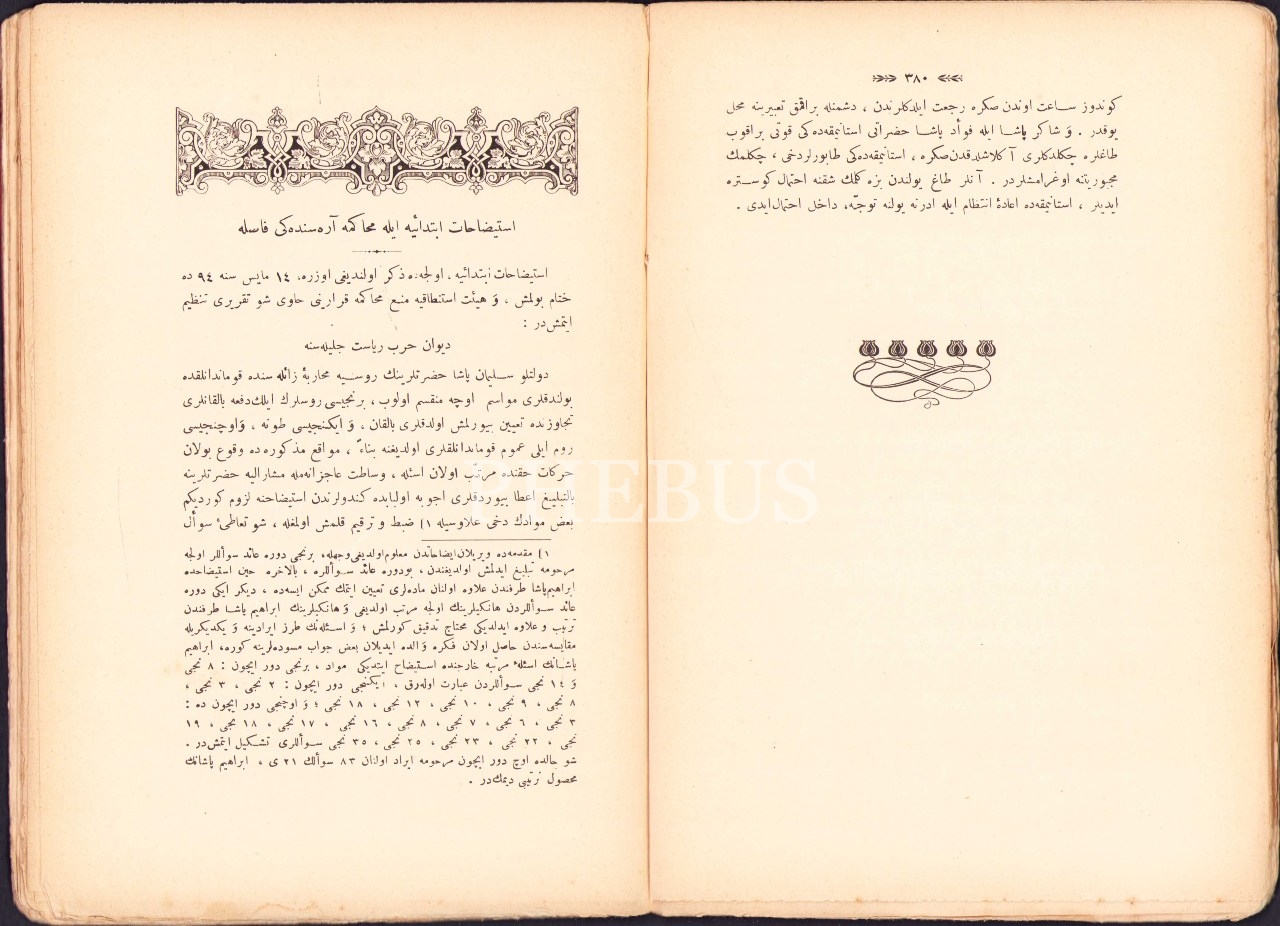 ٣٨٠
كوندوز ساعت اوندن صكره رجعت ايلدكلرندن ، دشمنله براقمق تعبيرينه محل
يوقدر . وَ شاكر پاشا ايله فوأد پاشا حضراتى استانيمقه‌ده‌كى قوتى براقوب
طاغلره چكلدكلرى آكلاشلدقدن صكره ، استانيمقه‌ده‌كى طابورلردخى ، چكلمك
مجبوريتنه اوغرامشلردر . آنلر طاغ يولندن بزه كلمك شقنه احتمال كوستره
ايديلر ، استانيمقه‌ده اعادهٔ انتظام ايله ادرنه يولنه توجّه، داخل احتمال‌ايدى .
استيضاحات ابتدائيه ايله محاكمه آره‌سنده‌كى فاصله
استيضاحات ابتدائيه ، اولجه‌ده ذكر اولنديغى اوزره، ١٤ مايس سنه ٩٤ ده
ختام بولمش ، وَ هيئت استنطاقيه منع محاكمه قرارينى حاوى شو تقريرى تنظيم
ايتمش‌در :
ديوان حرب رياست جليله‌سنه
دولتلو سليمان پاشا حضرتلرينك روسيه محاربهٔ زائله سنده قوماندانلقده
بولندقلرى مواسم اوچه منقسم اولوب ، برنجيسى روسلرك ايلك‌دفعه بالقانلرى
تجاوزنده تعيين بيورلمش اولدقلرى بالقان ، وَ ايكنجيسى طونه ، وَاوچنجيسى
روم ايلى عموم قوماندانلقلرى اولديغنه بناءً ، مواقع مذكوره‌ده وقوع بولان
حركات حقنده مرتب اولان اسئله ، وساطت عاجزانه‌مله مشاراليه حضرتلرينه
بالتبليغ اعطا بيوردقلرى اجوبه اولبابده كندولرندن استيضاحنه لزوم كورديكم
بعض موادك دخى علاوسيله ١) ضبط و ترقيم قلمش اولمغله ، شو تعاطئ سوأل
١) مقدمه‌ده ويريلان‌ايضاحاتدن معلوم‌اولديغى‌وجهله، برنجى دوره عائد سوأللر اولجه
مرحومه تبليغ ايدلمش اولديغندن ، بودوره عائد سوأللره ، بالاخره حين استيضاحده
ابراهيم‌پاشا طرفندن علاوه اولنان ماده‌لرى تعيين ايتمك ممكن ايسه‌ده ، ديكر ايكى دوره
عائد سوأللردن هانكيلرينك اولجه مرتب اولديغى وَ هانكيلرينك ابراهيم پاشا طرفندن
ترتيب و علاوه ايدلديكى محتاج تدقيق كورلمش ؛ وَ اسئله‌نك طرز ايرادينه وَ يكديكريله
مقايسه‌سندن حاصل اولان فكره وَ الده ايديلان بعض جواب مسوده‌لرينه كوره، ابراهيم
پاشانك اسئلهٔ مرتبه خارجنده استيضاح ايتديكى مواد ، برنجى دور ايچون : ٨ نجى
وَ ١٤ نجى سوأللردن عبارت اوله‌رق ، ايكنجى دور ايچون : ٢ نجى ، ٣ نجى ،
٨ نجى ، ٩ نجى ، ١٠ نجى ، ١٢ نجى ، ١٨ نجى ؛ وَ اوچنجى دور ايچون ده :
٣ نجى ، ٦ نجى ، ٧ نجى ، ٨ نجى ، ١٦ نجى ، ١٧ نجى ، ١٨ نجى ، ١٩
نجى ، ٢٢ نجى ، ٢٣ نجى ، ٢٥ نجى ، ٣٥ نجى سوأللرى تشكيل ايتمش‌در .
شو حالده اوچ دور ايچون مرحومه ايراد اولنان ٨٣ سوألك ٢١ ى ، ابراهيم پاشانك
محصول ترتيبى ديمك‌در .
PHEBUS